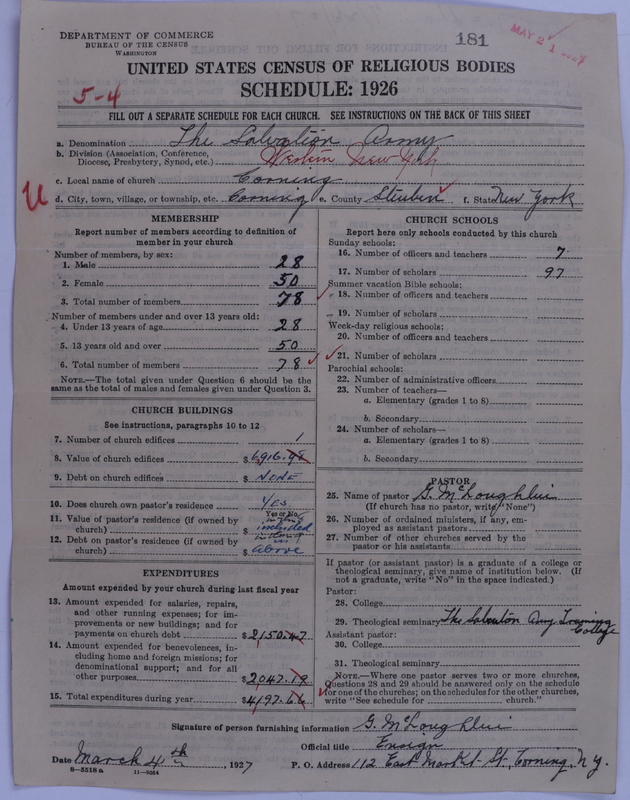 DEPARTMENT OF COMMERCE
BUREAU OF THE CENSUS
WASHINGTON
181
MAY 21
UNITED STATES CENSUS OF RELIGIOUS BODIES
SCHEDULE: 1926
5-4
FILL OUT A SEPARATE SCHEDULE FOR EACH CHURCH. SEE INSTRUCTIONS ON THE BACK OF THIS SHEET
a. Denomination The Salvation Army
b. Division (Association, Conference, Diocese, Presbytery, Synod, etc.) Western New York
c. Local name of church Corning
U
d. City, town, village, or township, etc. Corning e. County Steuben f. State New York
MEMBERSHIP
Report number of members according to definition of member in your church
Number of members, by sex:
1. Male 28
2. Female 50
3. Total number of members 78
Number of members under and over 13 years old:
4. Under 13 years of age 28
5. 13 years old and over 50
6. Total number of members 78
NOTE.—The total given under Question 6 should be the same as the total of males and females given under Question 3.
CHURCH BUILDINGS
See instructions, paragraphs 10 to 12
7. Number of church edifices 1
8. Value of church edifices $ 6,916.98
9. Debt on church edifices $ NONE
10. Does church own pastor's residence Yes
Yes or No
11. Value of pastor's residence (if owned by church) $ included
12. Debt on pastor's residence (if owned by church) $ in above
EXPENDITURES
Amount expended by your church during last fiscal year
13. Amount expended for salaries, repairs, and other running expenses; for improvements or new buildings; and for payments on church debt $ 2,150.47
14. Amount expended for benevolences, including home and foreign missions; for denominational support; and for all other purposes $ 2047.19
15. Total expenditures during year $ 4197.66
CHURCH SCHOOLS
Report here only schools conducted by this church
Sunday schools:
16. Number of officers and teachers 7
17. Number of scholars 97
Summer vacation Bible schools:
18. Number of officers and teachers
19. Number of scholars
Week-day religious schools:
20. Number of officers and teachers
21. Number of scholars
Parochial schools:
22. Number of administrative officers
23. Number of teachers—
a. Elementary (grades 1 to 8)
b. Secondary
24. Number of scholars—
a. Elementary (grades 1 to 8)
b. Secondary
PASTOR
25. Name of pastor G. McLoughlin
(If church has no pastor, write "None")
26. Number of ordained ministers, if any, employed as assistant pastors
27. Number of other churches served by the pastor or his assistants
If pastor (or assistant pastor) is a graduate of a college or theological seminary, give name of institution below. (If not a graduate, write "No" in the space indicated.)
Pastor:
28. College
29. Theological seminary The Salvation Army Training College
Assistant pastor:
30. College
31. Theological seminary
NOTE.—Where one pastor serves two or more churches, Questions 28 and 29 should be answered only on the schedule for one of the churches; on the schedules for the other churches, write "See schedule for church."
Signature of person furnishing information G. McLoughlin
Official title Ensign
Date March 4th, 1927 P. O. Address 112 East Market St, Corning, N.Y.
8-5518a 11-9064